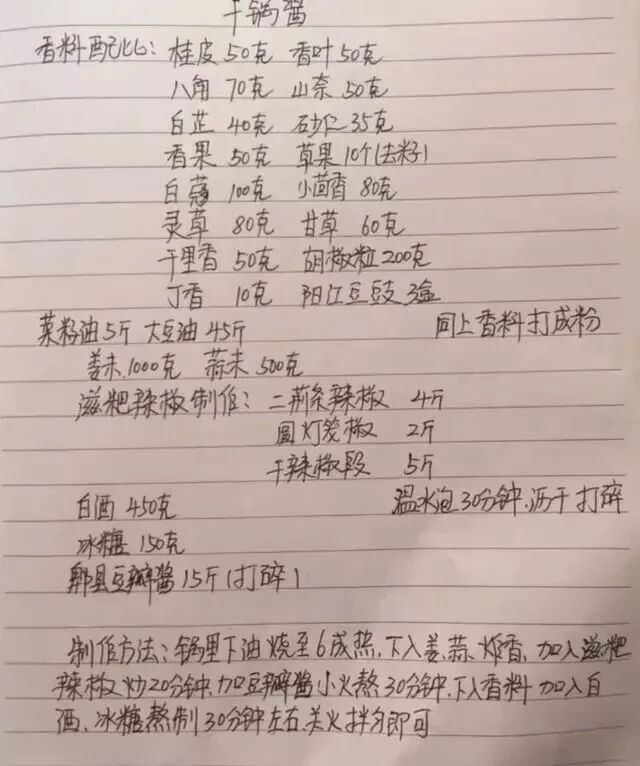 干锅酱
香料配比: 桂皮 50克 香叶 50克
八角 70克 山奈 50克
白芷 40克 砂仁 35克
香果 50克 草果 10个(去籽)
白蔻 100克 小茴香 80克
灵草 80克 甘草 60克
千里香 50克 胡椒粒 200克
丁香 10克 阳江豆豉 3盒
菜籽油 5斤 大豆油 45斤 同上香料打成粉
姜末 1000克 蒜末 500克
滋粑辣椒制作: 二荆条辣椒 4斤
圆灯笼椒 2斤
干辣椒段 5斤
白酒 450克 温水泡30分钟.沥干打碎
冰糖 150克
郫县豆瓣酱 15斤(打碎)
制作方法: 锅里下油烧至6成热.下入姜.蒜.炸香.加入滋粑
辣椒炒20分钟.加豆瓣酱小火熬30分钟.下入香料加入白
酒.冰糖熬制30分钟左右.关火拌匀即可